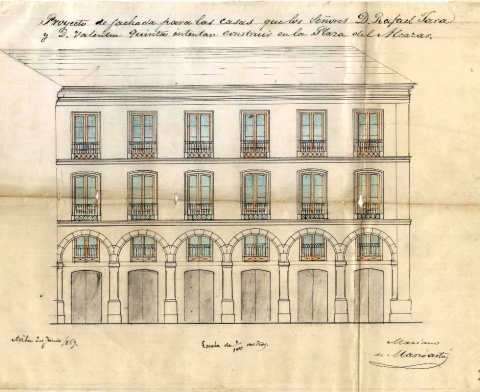 Proyecto de fachada para las casas que los Señores D. Rafael Tara
y D. Valentin Quintas intentan construir en la Plaza del Alcazar.
Avila 20 Junio 1869.
Escala de 1/100 metros.
Mariano
de Marcoartú